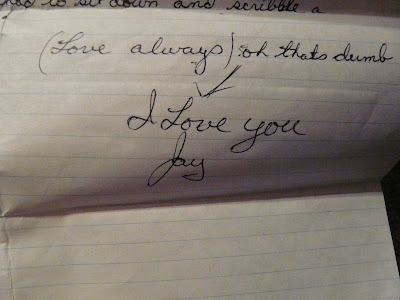 had to sit down and scribble a
(Love always) oh thats dumb
I Love you
Jay